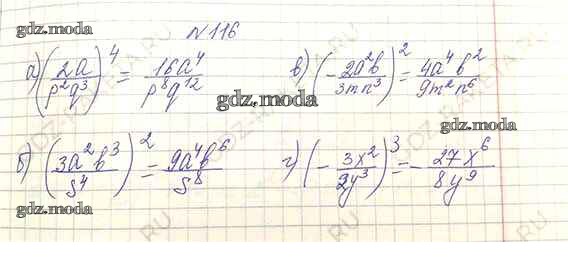 №116
gdz.moda
а) (2a / p²q³)⁴ = 16a⁴ / p⁸q¹²
в) (- 2a²b / 3mn³)² = 4a⁴b² / 9m²n⁶
gdz.moda
gdz.moda
б) (3a²b³ / s⁴)² = 9a⁴b⁶ / s⁸
г) (- 3x² / 2y³)³ = - 27x⁶ / 8y⁹
gdz.moda
gdz.moda